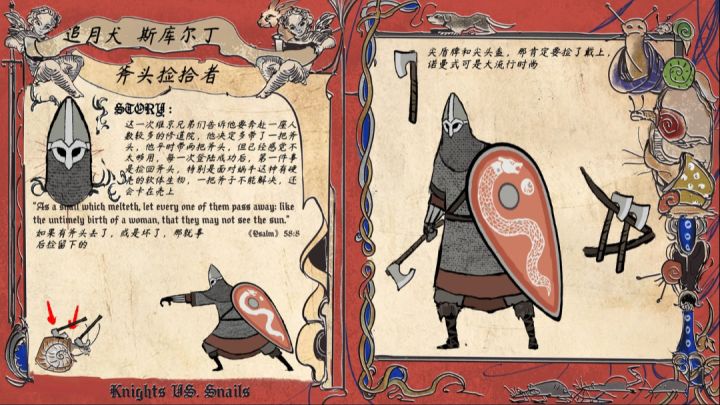 追月犬 斯库尔丁
斧头捡拾者
STORY:
这一次维京兄弟们告诉他要奔赴一座人
数较多的修道院，他决定多带了一把斧
头，他平时带两把斧头，但已经感觉不
太够用，每一次登陆成功后，第一件事
是捡回斧头，特别是面对蜗牛这种有硬
壳的软体生物，一把斧子不能解决，还
会卡在壳上
"As a snail which melteth, let every one of them pass away: like
the untimely birth of a woman, that they may not see the sun."
如果有斧头丢了，或是坏了，那就事
后捡留下的
《Psalm》58:8
Knights VS. Snails
尖盾牌和尖头盔，那肯定要捡了戴上，
诺曼式可是大流行时尚